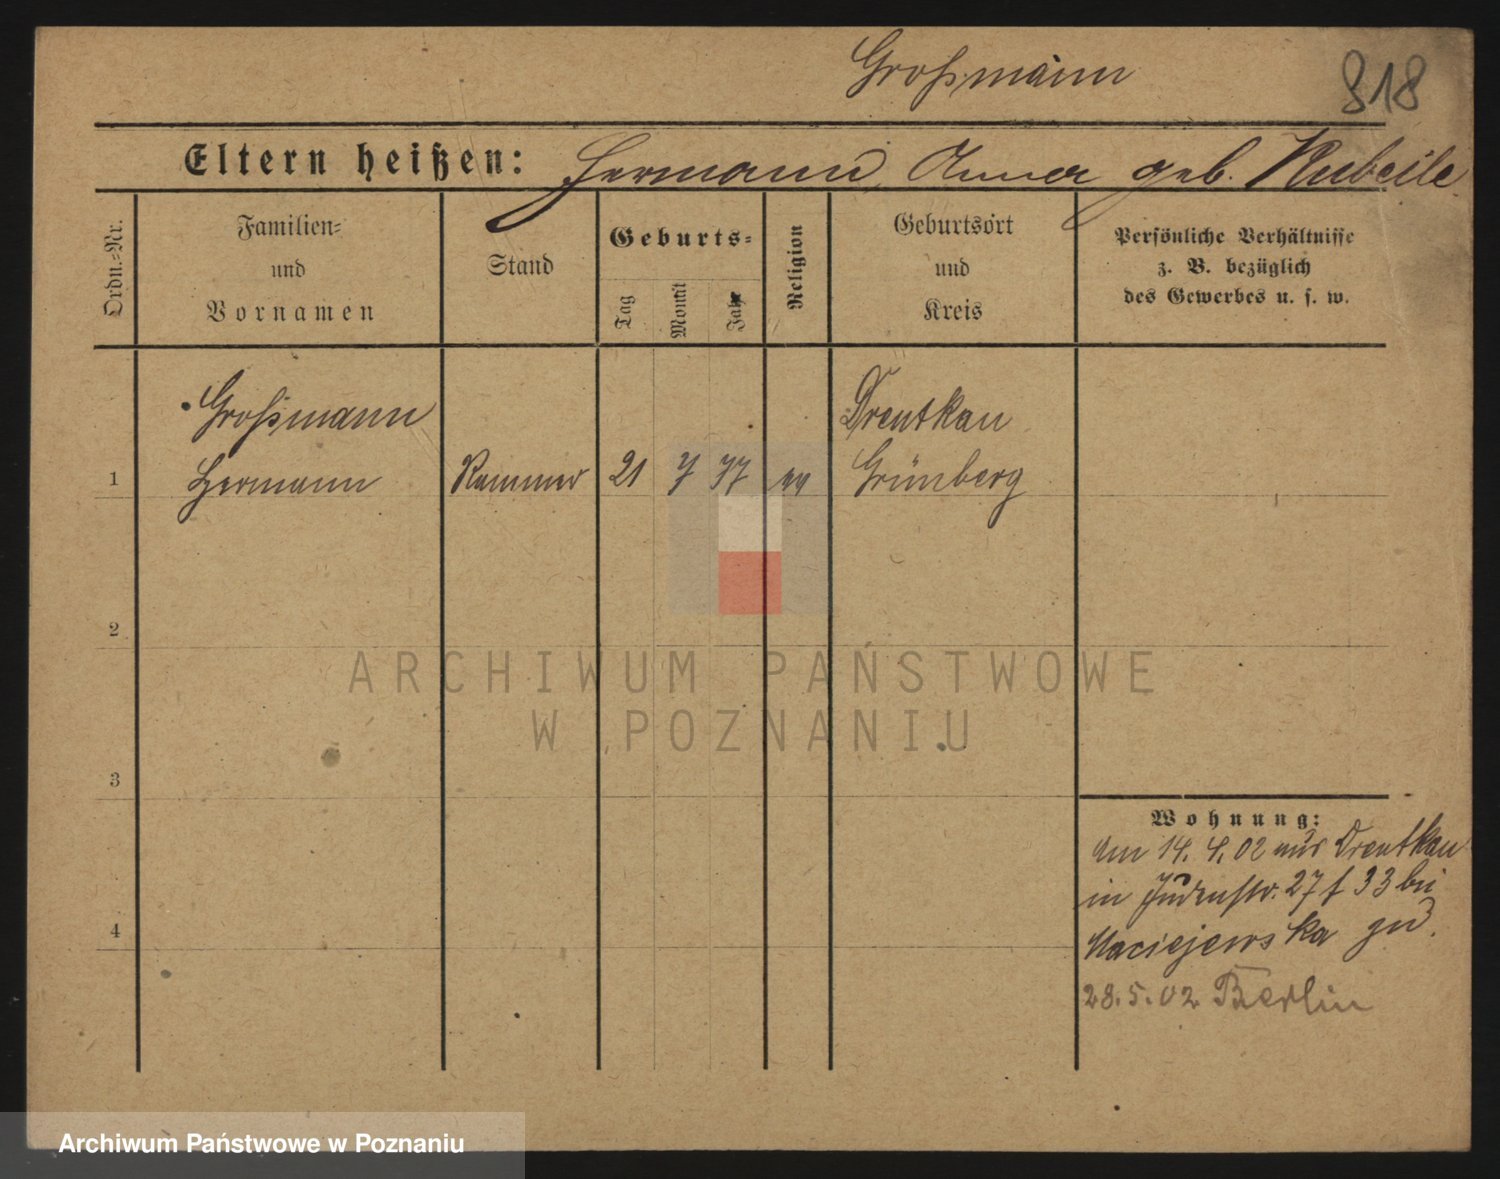 Großmann
818
Eltern heißen: Hermann, Anna geb. Kubeile
Ordn.-Nr.
Familien-
und
Vornamen
Stand
Geburts-
Tag
Monat
Jahr
Religion
Geburtsort
und
Kreis
Persönliche Verhältnisse
z. B. bezüglich
des Gewerbes u. s. w.
Großmann
Drentkau
1 Hermann 21 7 77 Grünberg
2
ARCHIWUM PAŃSTWOWE
W POZNANIU
3
Wohnung:
am 14. 4. 02 aus Drentkau
in Judenstr. 27 f 33 bei
4
Maciejewska
28.5.02 Berlin
Archiwum Państwowe w Poznaniu